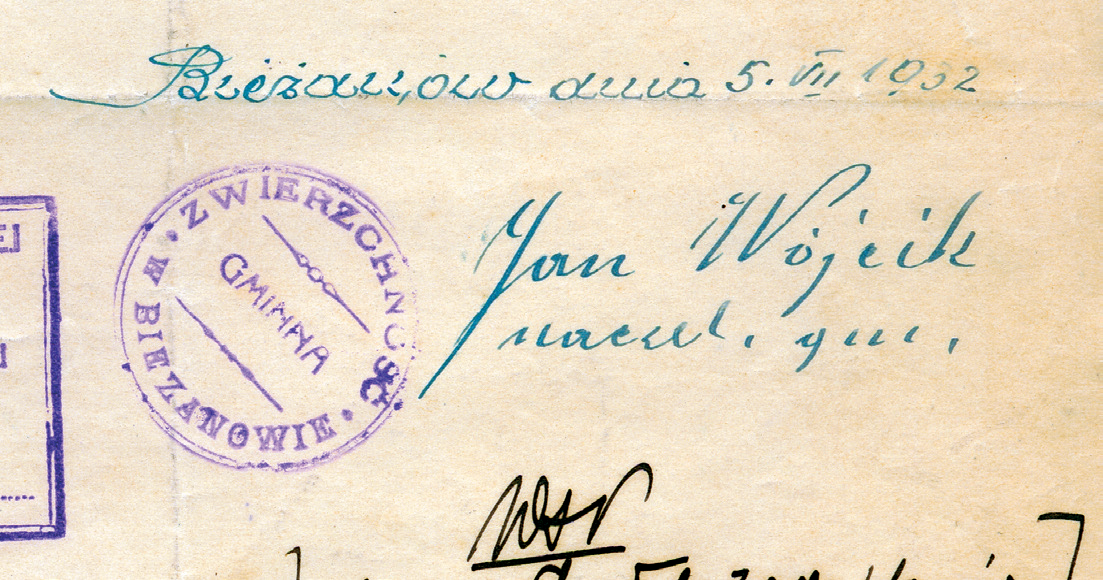 Bieżanów dnia 5. VII 1932
ZWIERZCHNOŚĆ
GMINNA
W BIEŻANOWIE
Jan Wójcik
naczel. gm.